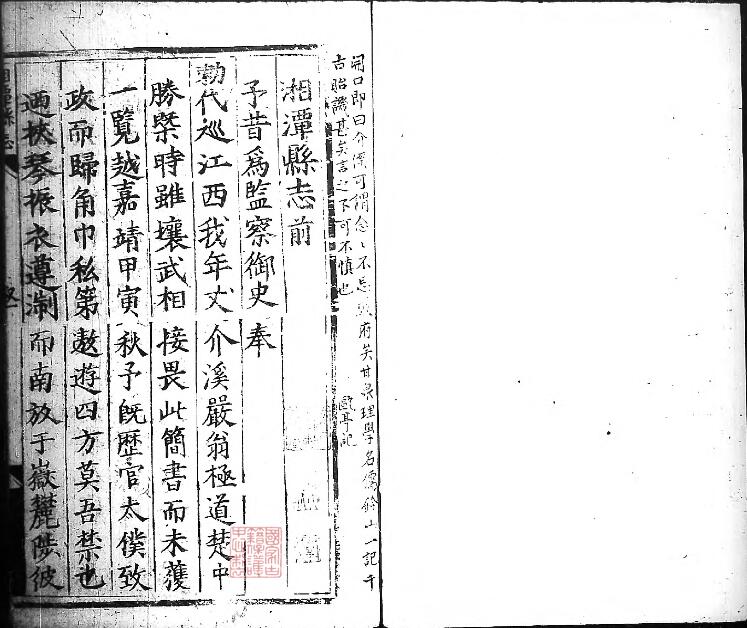 開口即曰介溪可謂念〻不忘政府矣甘泉理學名儒鈐山一記千
古貽譏甚矣言之不可不慎也
湘潭縣志前
予昔爲監察御史奉
勑代巡江西我年丈介溪嚴翁極道楚中
勝槩時雖壤武相接畏此簡書而未獲
一覽越嘉靖甲寅秋予既歴官太僕致
政而歸角巾私第遨遊四方莫吾禁也
迺挾琴振衣遵湘而南放于嶽麓陟彼